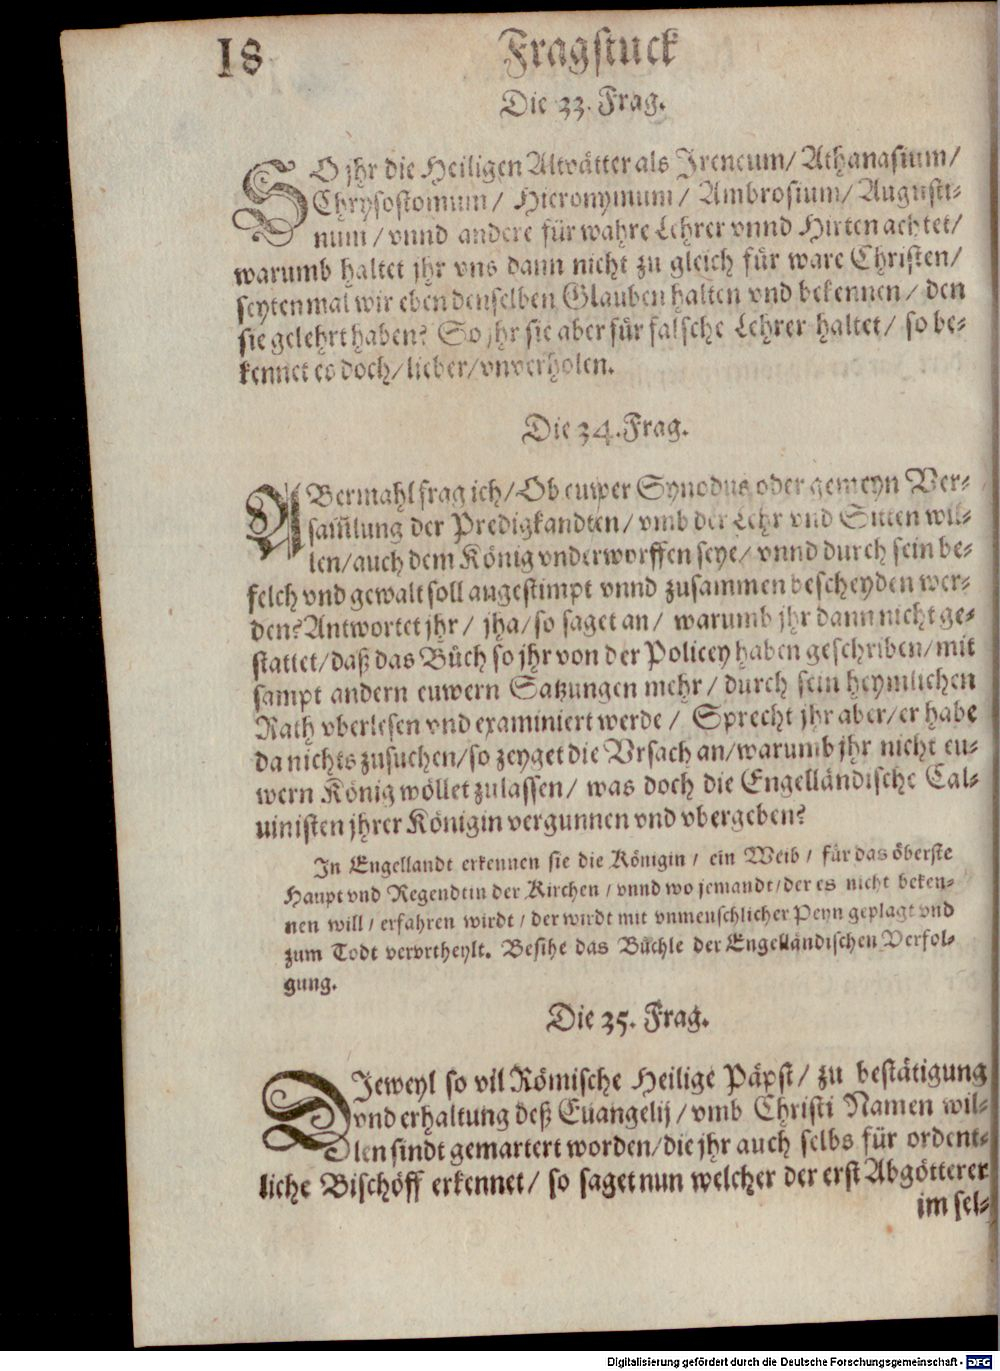 18 Fragstuck
Die 33. Frag.
SO jhr die Heiligen Altvätter als Jreneum/ Athanasium/
Chrysostomum/ Hieronymum/ Ambrosium/ Augusti-
num/ vnnd andere für wahre Lehrer vnnd Hirten achtet/
warumb haltet jhr vns dann nicht zu gleich für ware Christen/
seytenmal wir eben denselben Glauben halten vnd bekennen/ den
sie gelehrt haben? So jhr sie aber für falsche Lehrer haltet/ so be-
kennet es doch/ lieber/ vnverholen.
Die 34. Frag.
ABermahl frag ich/ Ob euwer Synodus oder gemeyn Ver-
sam̃lung der Predigkandten/ vmb der Lehr vnd Sitten wil-
len/ auch dem König vnderworffen seye/ vnnd durch sein be-
felch vnd gewalt soll angestimpt vnnd zusammen bescheyden wer-
den? Antwortet jhr/ jha/ so saget an/ warumb jhr dann nicht ge-
stattet/ daß das Bůch so jhr von der Policey haben geschriben/ mit
sampt andern euwern Satzungen mehr/ durch sein heymlichen
Rath vberlesen vnd examiniert werde/ Sprecht jhr aber/ er habe
da nichts zusuchen/ so zeyget die Vrsach an/ warumb jhr nicht eu-
wern König wöllet zulassen/ was doch die Engelländische Cal-
uinisten jhrer Königin vergunnen vnd vbergeben?
In Engellandt erkennen sie die Königin/ ein Weib/ für das öberste
Haupt vnd Regendtin der Kirchen/ vnnd wo jemandt/ der es nicht beken-
nen will/ erfahren wirdt/ der wirdt mit vnmenschlicher Peyn geplagt vnd
zum Todt vervrtheylt. Besihe das Büchle der Engelländischen Verfol-
gung.
Die 35. Frag.
DJeweyl so vil Römische Heilige Päpst/ zu bestätigung
vnd erhaltung deß Euangelij/ vmb Christi Namen wil-
len sindt gemartert worden/ die jhr auch selbs für ordent-
liche Bischöff erkennet/ so saget nun welcher der erst Abgötterer
im sel-
Digitalisierung gefördert durch die Deutsche Forschungsgemeinschaft - DFG